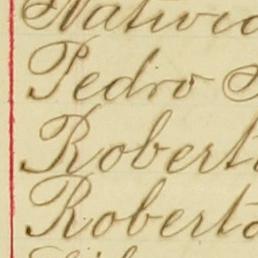 Nativid
Pedro
Robert
Roberta